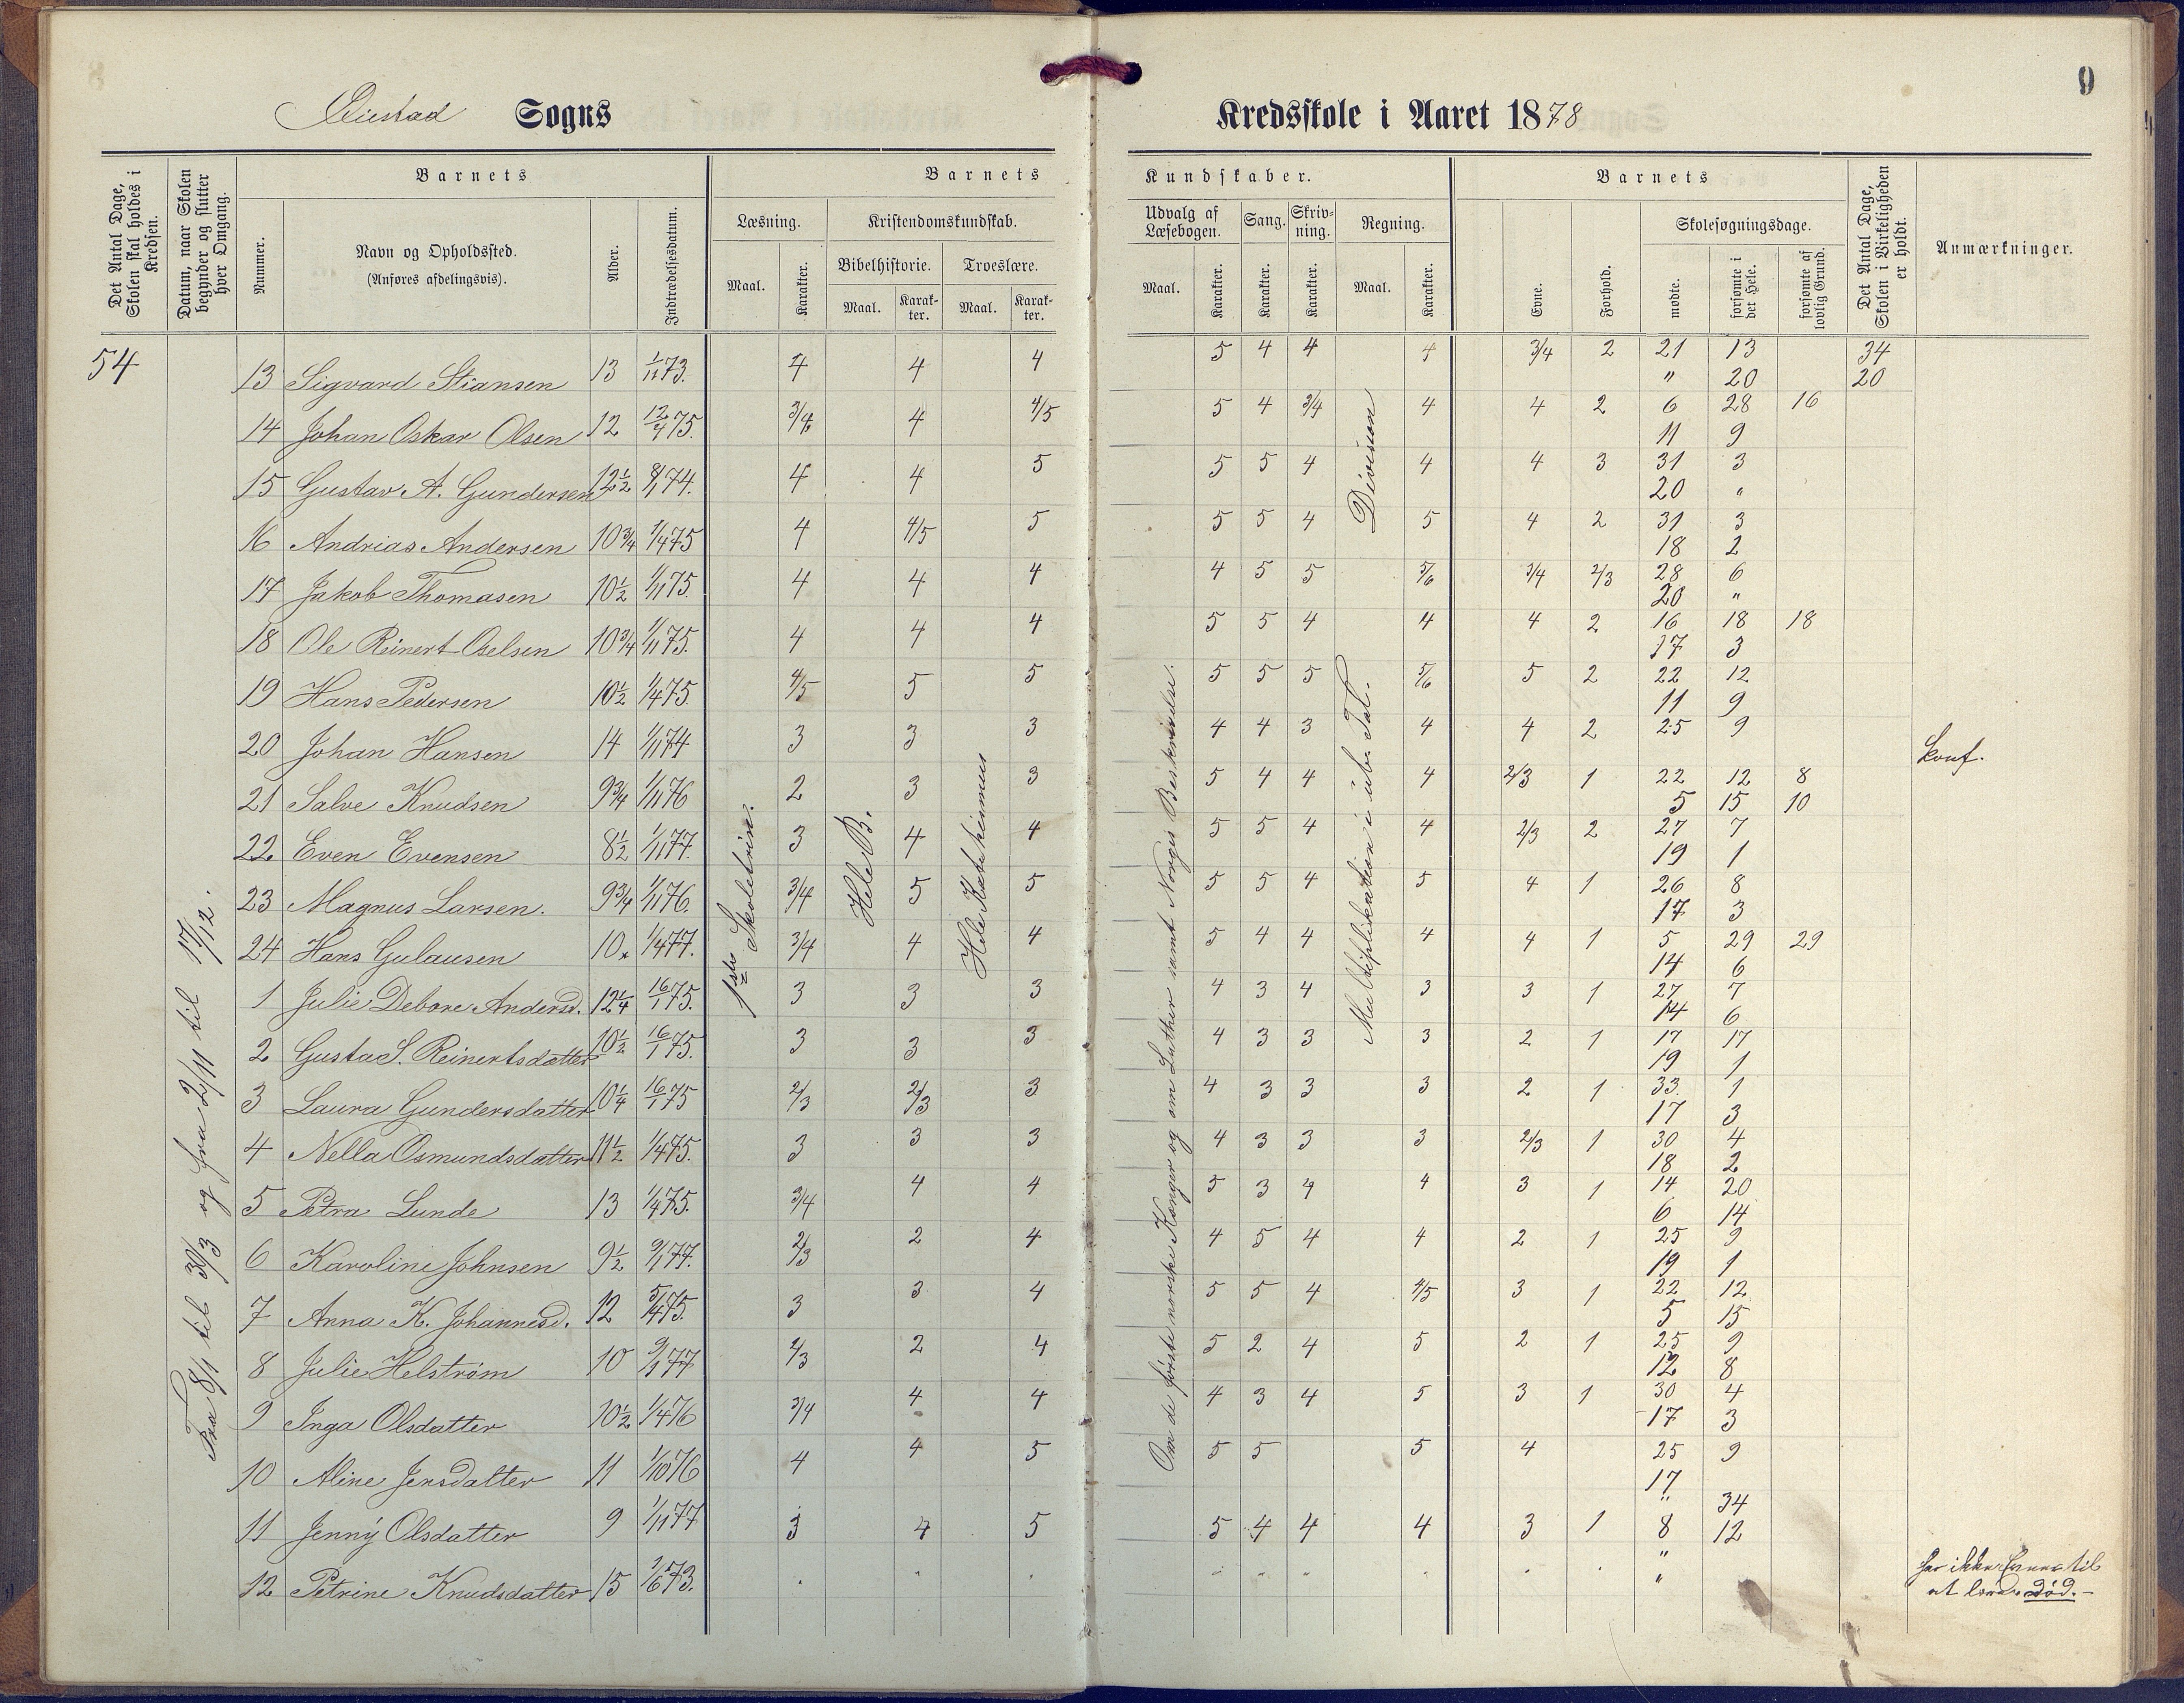 9
Øiestad Sogns
Kredsskole i Aaret 1878
Det Antal Dage, Skolen skal holdes i Kredsen.
Datum, naar Skolen begynder og slutter hver Omgang.
Barnets
Nummer.
Navn og Opholdssted.
(Anføres afdelingsvis).
Alder.
Indtrædelsesdatum.
Barnets
Læsning.
Maal.
Karakter.
Kristendomskundskab.
Bibelhistorie.
Maal.
Karakter.
Troeslære.
Maal.
Karakter.
Kundskaber.
Udvalg af Læsebogen.
Maal.
Karakter.
Sang.
Karakter.
Skrivning.
Karakter.
Regning.
Maal.
Karakter.
Barnets
Evne.
Forhold.
Skolesøgningsdage.
mødte.
forsømte i det Hele.
forsømte af lovlig Grund.
Det Antal Dage, Skolen i Virkeligheden er holdt.
Anmærkninger.
54
Fra 8/1 til 30/3 og fra 2/11 til 17/12.
1ste Skoletrin.
Hele B.
Hele Katekismus
Om de første norske Konger og om Luther samt Norges Beskrivelse.
Division
Multiplikation i ube. Tal.
13 Sigvard Stiansen 13 1/11 73. 4 4 4 5 4 4 4 3/4 2 21 13 34
" 20 20
14 Johan Oskar Olsen 12 12/4 75. 3/4 4 4/5 5 4 3/4 4 4 2 6 28 16
11 9
15 Gustav A. Gundersen 12 1/2 8/1 74. 4 4 5 5 5 4 4 4 3 31 3
20 "
16 Andrias Andersen 10 3/4 1/4 75 4 4/5 5 5 5 4 5 4 2 31 3
18 2
17 Jakob Thomasen 10 1/2 1/11 75. 4 4 4 4 5 5 5/6 3/4 2/3 28 6
20 "
18 Ole Reinert Oselsen 10 3/4 1/11 75. 4 4 4 5 5 4 4 4 2 16 18 18
17 3
19 Hans Pedersen 10 1/2 1/4 75. 4/5 5 5 5 5 5 5/6 5 2 22 12
11 9
20 Johan Hansen 14 1/11 74 3 3 3 4 4 3 4 4 2 25 9 Konf.
21 Salve Knudsen 9 3/4 1/11 76 2 3 3 5 4 4 4 2/3 1 22 12 8
5 15 10
22 Even Evensen 8 1/2 1/11 77. 3 4 4 5 5 4 4 2/3 2 27 7
19 1
23 Magnus Larsen. 9 3/4 1/11 76. 3/4 5 5 5 5 4 5 4 1 26 8
17 3
24 Hans Gulausen 10 1/4 77. 3/4 4 4 5 4 4 4 4 1 5 29 29
14 6
1 Julie Debore Andersd. 12 1/4 16/1 75. 3 3 3 4 3 4 3 3 1 27 7
14 6
2 Gusta S. Reinertsdatter 10 1/2 16/1 75. 3 3 3 4 3 3 3 2 1 17 17
19 1
3 Laura Gundersdatter 10 1/4 16/1 75 2/3 2/3 3 4 3 3 3 2 1 33 1
17 3
4 Nella Osmundsdatter 11 1/2 1/4 75. 3 3 3 4 3 3 3 2/3 1 30 4
18 2
5 Petra Lunde 13 1/4 75. 3/4 4 4 5 3 4 4 3 1 14 20
6 14
6 Karoline Johnsen 9 1/2 9/1 77. 2/3 2 4 4 5 4 4 2 1 25 9
19 1
7 Anna K. Johannesd. 12 5/4 75. 3 3 4 5 5 4 4/5 3 1 22 12
5 15
8 Julie Helstrøm 10 9/1 77 2/3 2 4 5 2 4 5 2 1 25 9
12 8
9 Inga Olsdatter 10 1/2 1/4 76 3/4 4 4 4 3 4 5 3 1 30 4
17 3
10 Aline Jensdatter 11 1/10 76 4 4 5 5 5 5 4 25 9
17
" 34
11 Jenny Olsdatter 9 1/11 77 3 4 5 5 4 4 4 3 1 8 12
"
12 Petrine Knudsdatter 15 1/6 73. "
har ikke Evner til
at lære død.